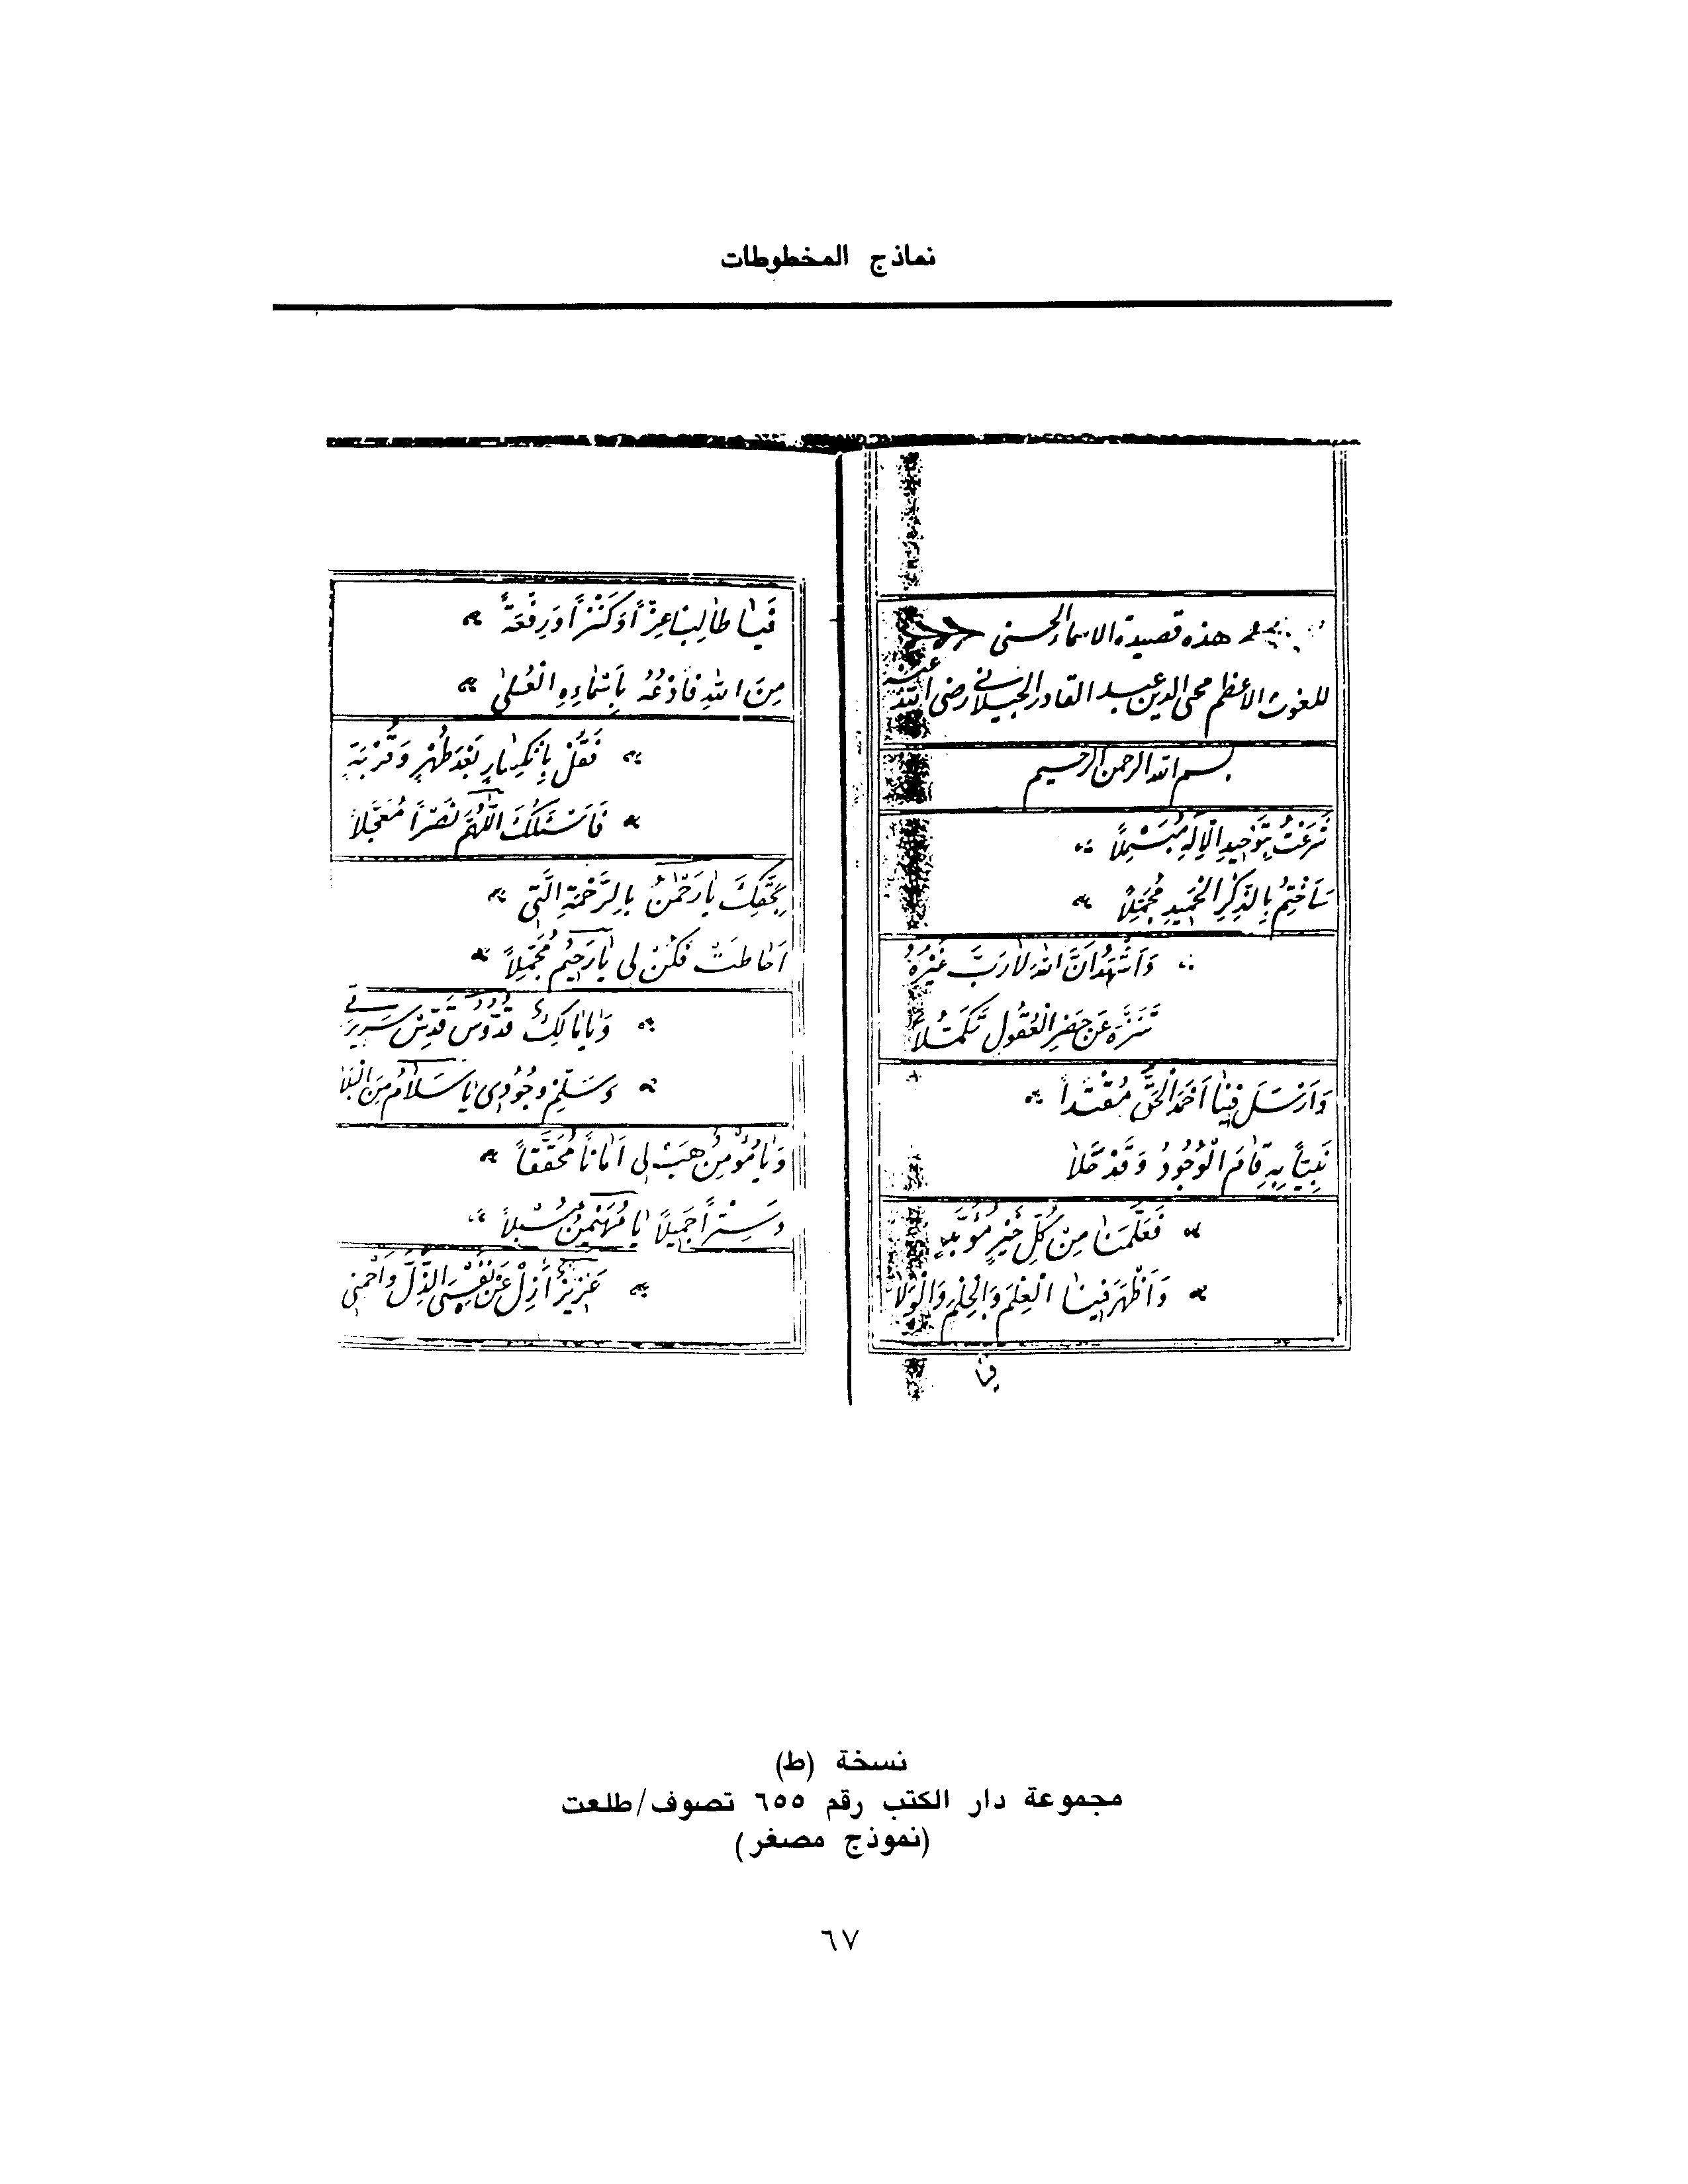 نماذج المخطوطات
هذه قصيدة الاسماء الحسنى
للغوث الاعظم محى الدين عبد القادر الجيلانى رضى الله عنه
بسم الله الرحمن الرحيم
شَرَعْتُ بِتَوْحِيدِ الْاِلٰهِ مُبَسْمِلًا
سَأَخْتِمُ بِالذِّكْرِ الْحَمِيدِ مُجَمِّلًا
وَاَشْهَدُ اَنَّ اللّٰهَ لَا رَبَّ غَيْرُهُ
تَنَزَّهَ عَنْ حَصْرِ الْعُقُولِ تَكَمُّلًا
وَاَرْسَلَ فِينَا اَحْمَدَ الْحَقِّ مُقْتَدًا
نَبِيًّا بِهِ قَامَ الْوُجُودُ وَقَدْ خَلَا
فَعَلَّمَنَا مِنْ كُلِّ خَيْرٍ مُؤَبَّدٍ
وَاَظْهَرَ فِينَا الْعِلْمَ وَالْحِلْمَ وَالْوَلَا
فيا
فَيَا طَالِبًا عِزًّا وَكَنْزًا وَرِفْعَةً
مِنَ اللّٰهِ فَادْعُهُ بِاَسْمَاءِهِ الْعُلٰى
فَقُلْ بِانْكِسَارٍ بَعْدَ طُهْرٍ وَقُرْبَةٍ
فَاَسْئَلُكَ اللّٰهُمَّ نَصْرًا مُعَجَّلًا
بِحَقِّكَ يَا رَحْمٰنُ بِالرَّحْمَةِ الَّتِى
اَحَاطَتْ فَكُنْ لِى يَا رَحِيمُ مُجَمِّلًا
وَيَا مَالِكُ قُدُّوسُ قَدِّسْ سَرِيرَتِى
وَسَلِّمْ وُجُودِى يَا سَلَامُ مِنَ الْبَلَا
وَيَا مُؤْمِنُ هَبْ لِى اَمَانًا مُحَقَّقًا
وَسِتْرًا جَمِيلًا يَا مُهَيْمِنُ مُسْبَلًا
عَزِيزُ اَزِلْ عَنْ نَفْسِىَ الذُّلَّ وَاحْمِنِى
نسخة (ط)
مجموعة دار الكتب رقم ٦٥٥ تصوف/طلعت
(نموذج مصغر)
٦٧